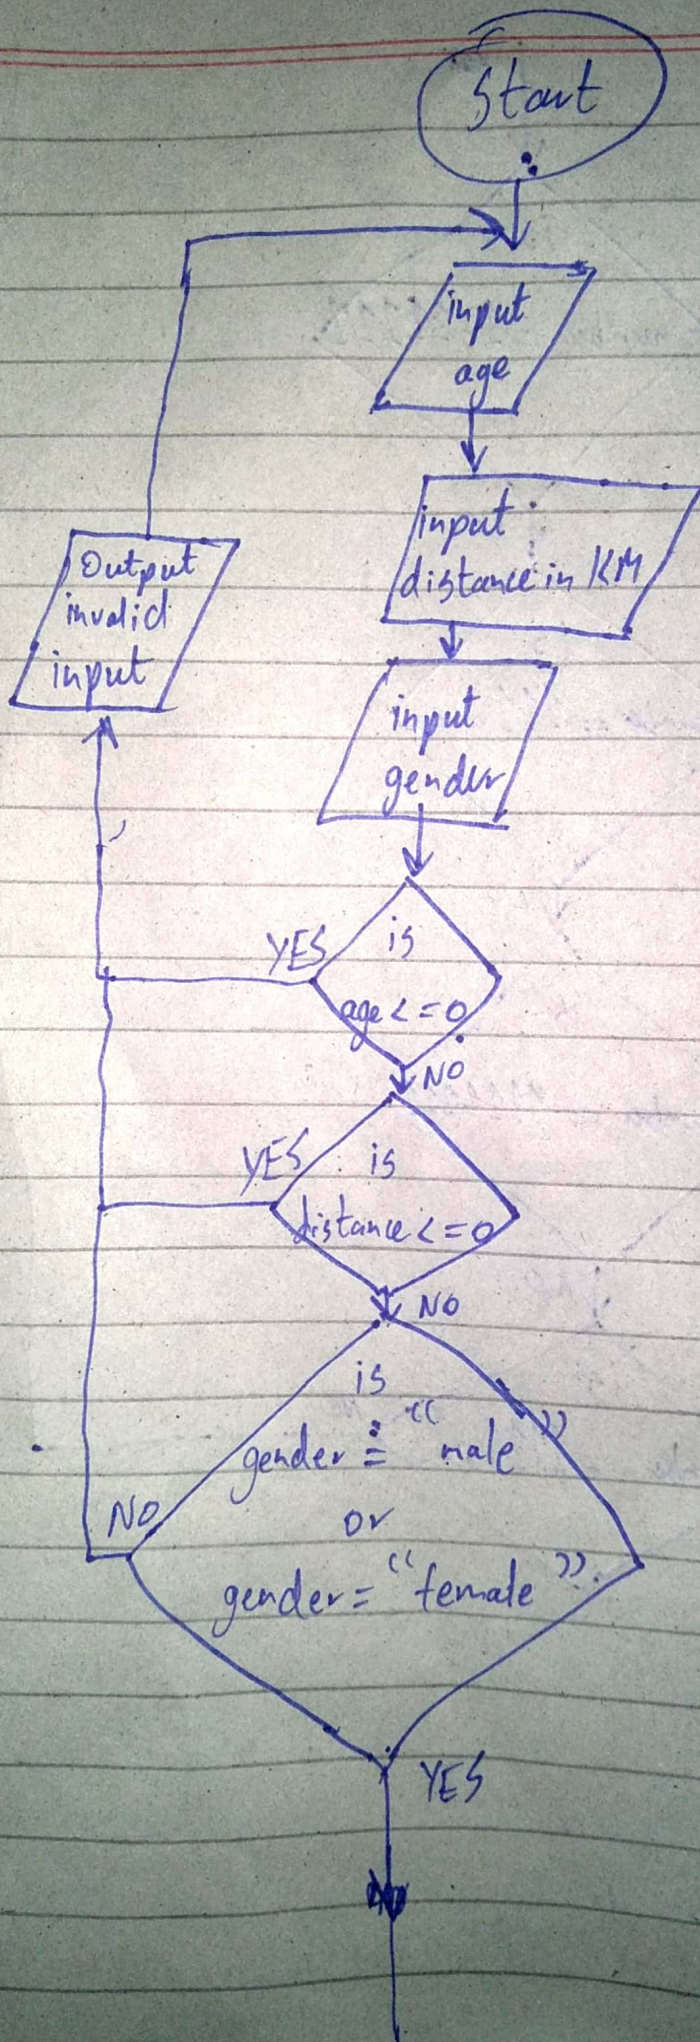 Start
input
age
input
distance in KM
Output
invalid
input
input
gender
YES
is
age <= 0
NO
YES
is
distance <= 0
NO
is
gender = "male"
or
gender = "female"
NO
YES